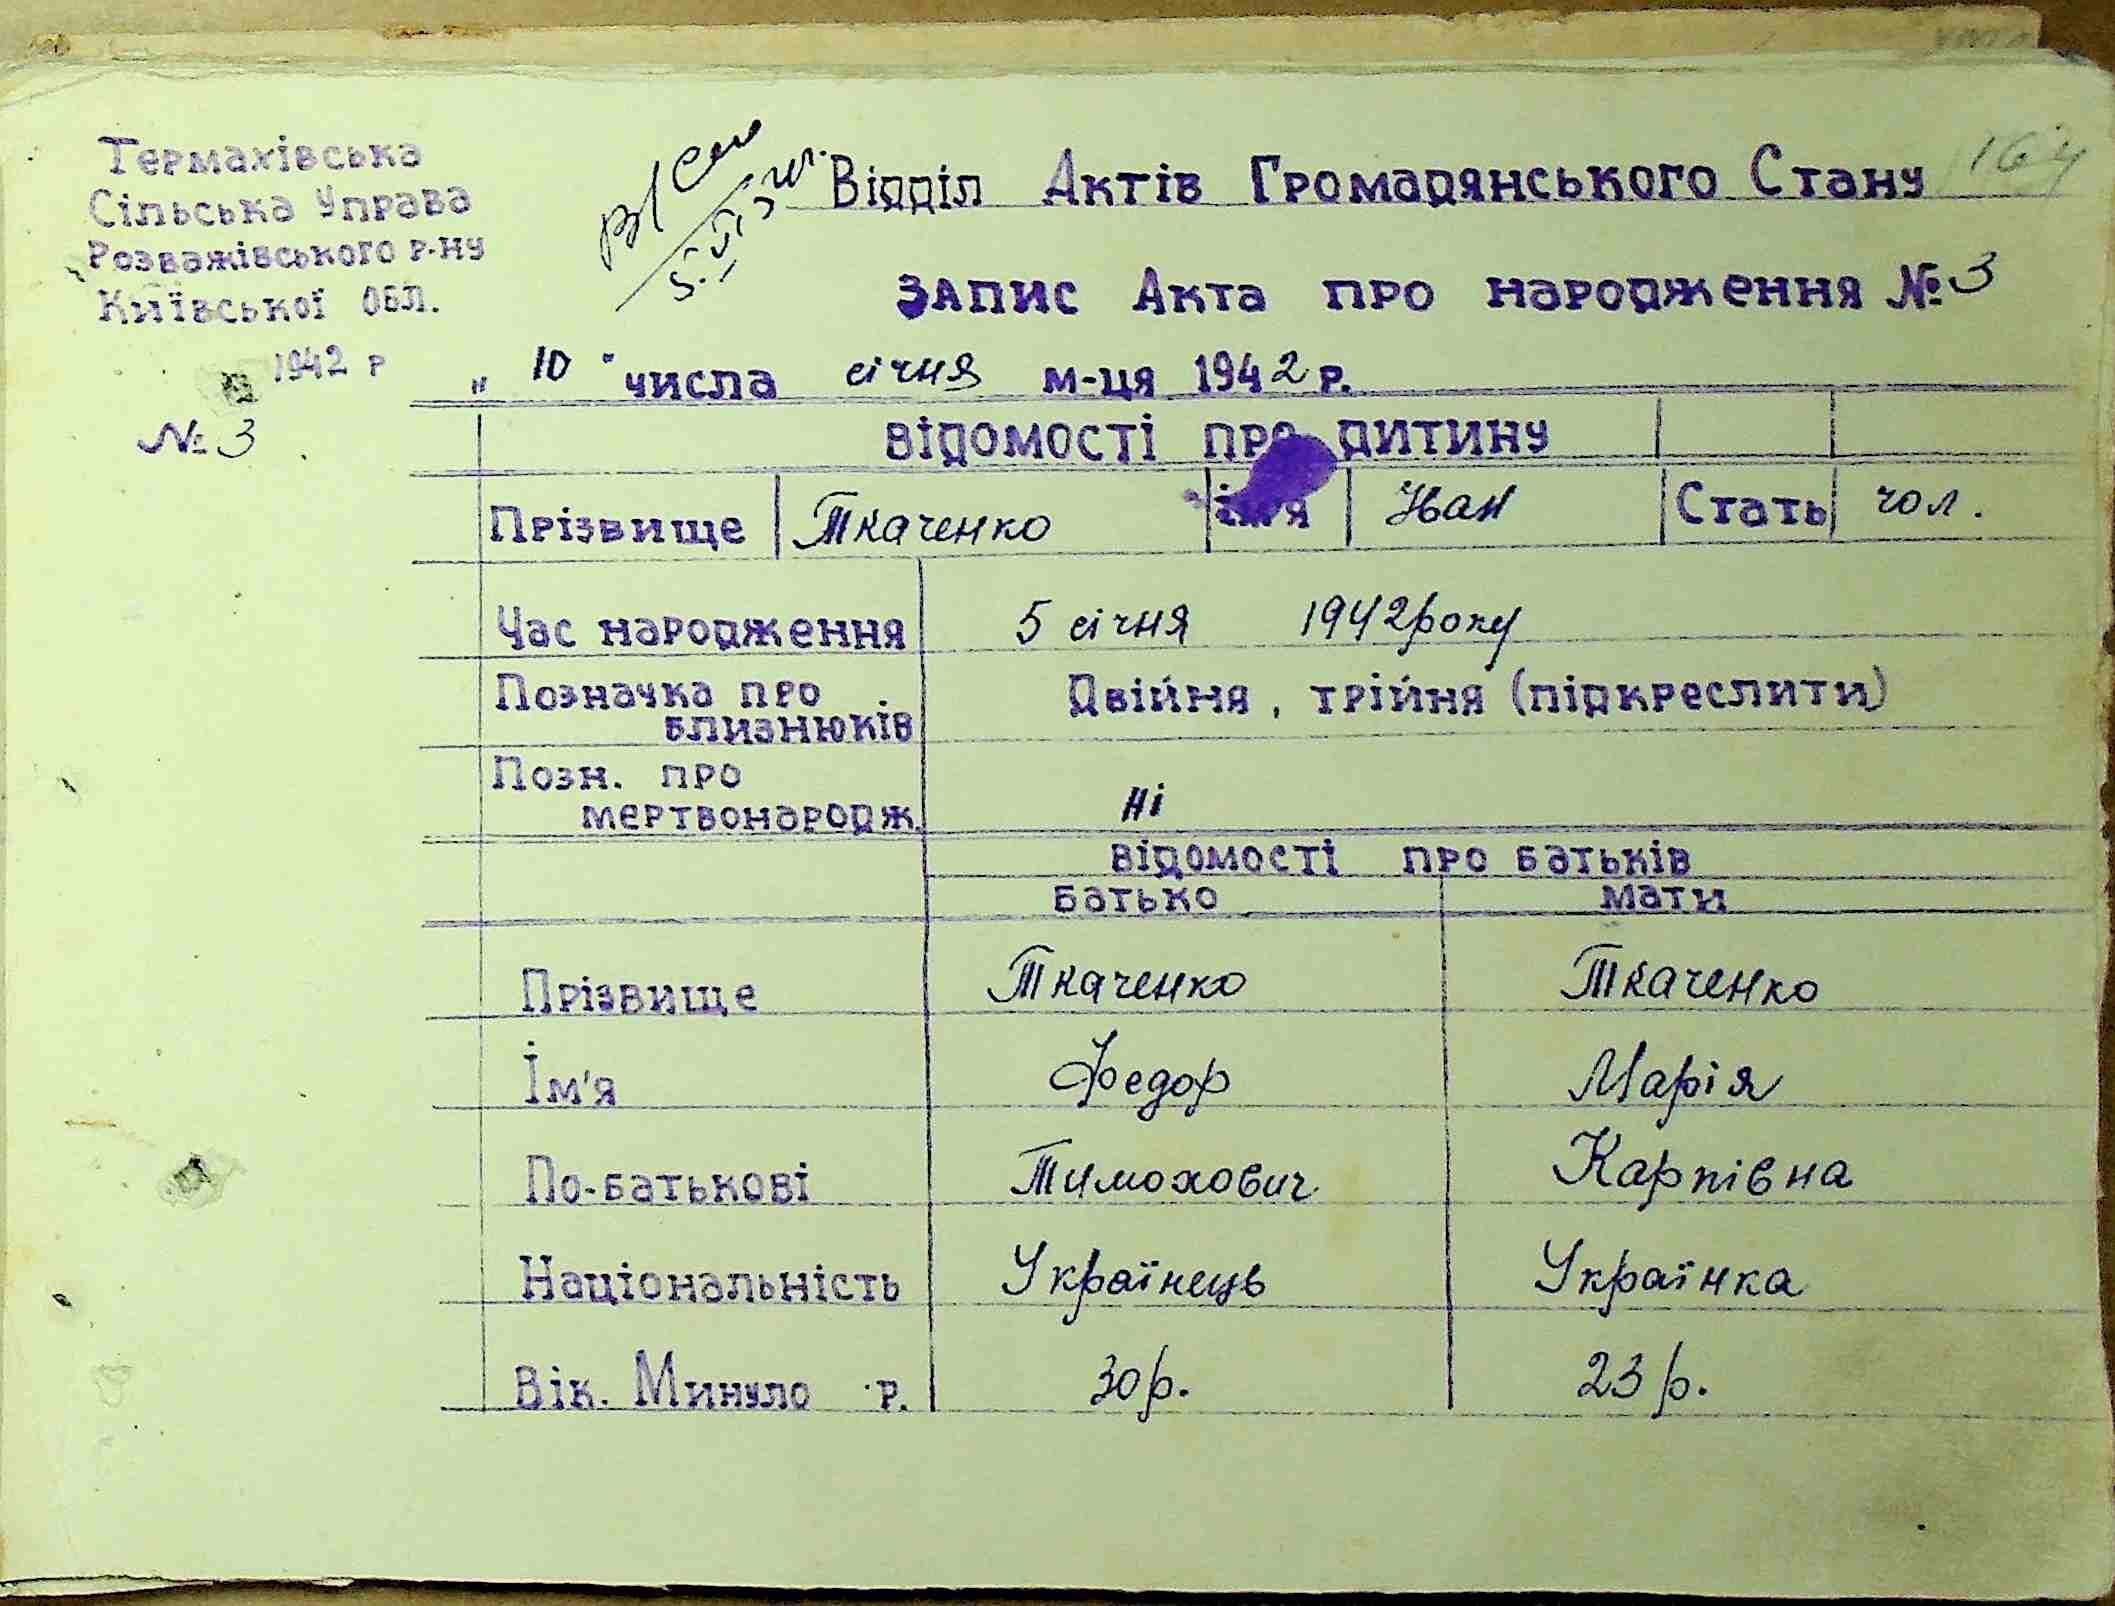 Термахівська
Сільська Управа
Розважівського р-ну
Київської обл.
1942 р
№ 3
Відділ Актів Громадянського Стану
Запис Акта про народження № 3
„ 10 " числа січня м-ця 1942 р.
Відомості про дитину
Прізвище Ткаченко ім'я Іван Стать чол.
Час народження 5 січня 1942 року
Позначка про близнюків Двійня, трійня (підкреслити)
Позн. про мертвонародж. ні
Відомості про батьків
батько мати
Прізвище Ткаченко Ткаченко
Ім'я Федор Марія
По-батькові Тимохович Карпівна
Національність Українець Українка
Вік. Минуло р. 30 р. 23 р.